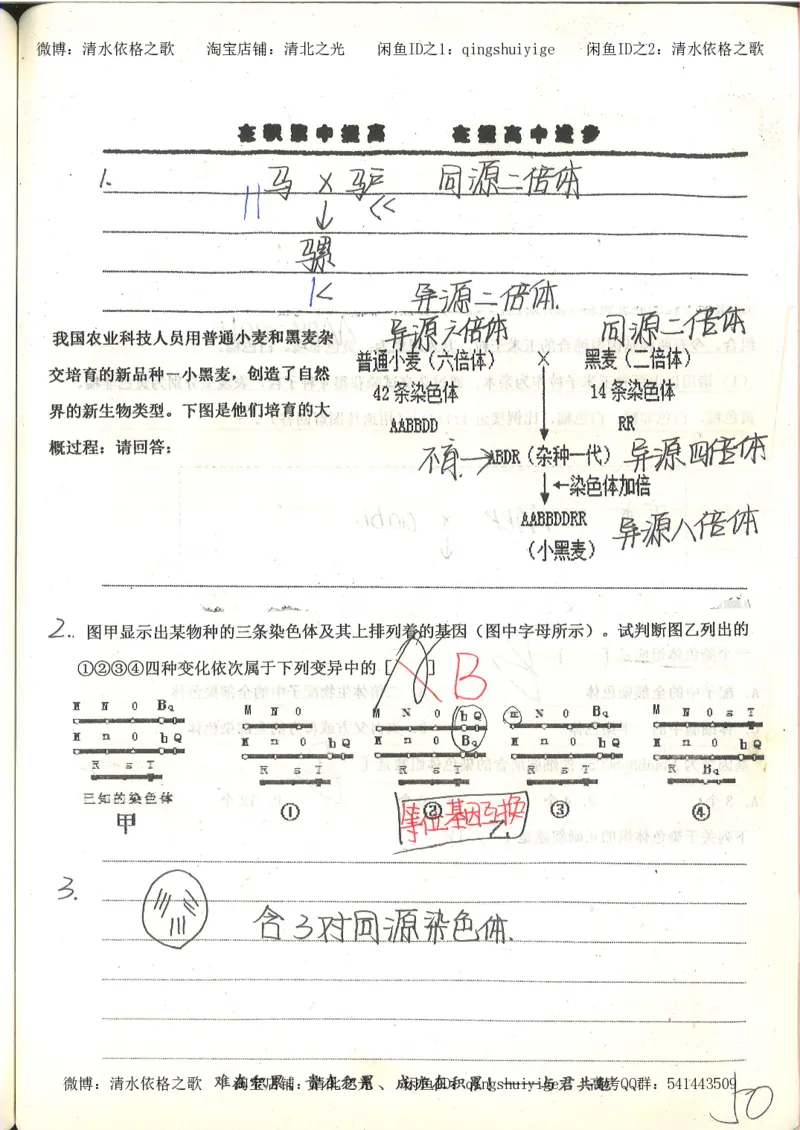 微博：清水依格之歌 淘宝店铺：清北之光 闲鱼ID之1：qingshuiyige 闲鱼ID之2：清水依格之歌
在积累中提高 在提高中进步
1. 马 × 驴 同源二倍体
↓
骡
异源二倍体.
我国农业科技人员用普通小麦和黑麦杂
交培育的新品种一小黑麦，创造了自然
界的新生物类型。下图是他们培育的大
概过程：请回答：
异源六倍体 同源二倍体
普通小麦（六倍体） × 黑麦（二倍体）
42条染色体 14条染色体
AABBDD RR
不育→ABDR（杂种一代） 异源四倍体
↓←染色体加倍
AABBDDRR 异源八倍体
（小黑麦）
2. 图甲显示出某物种的三条染色体及其上排列着的基因（图中字母所示）。试判断图乙列出的
①②③④四种变化依次属于下列变异中的［ ］ B
M N O B q
M n o b Q
R s T
已知的染色体
甲
M N O
M n o b Q
R s T
①
M N O b Q
M n o B q
R s T
②
m N O B q
M n o b Q
R s T
③
M N O s T
M n o b Q
R B q
④
等位基因互换
乙
3. 含3对同源染色体.
微博：清水依格之歌 淘宝店铺：清北之光 闲鱼ID：qingshuiyige 高考QQ群：541443509
50